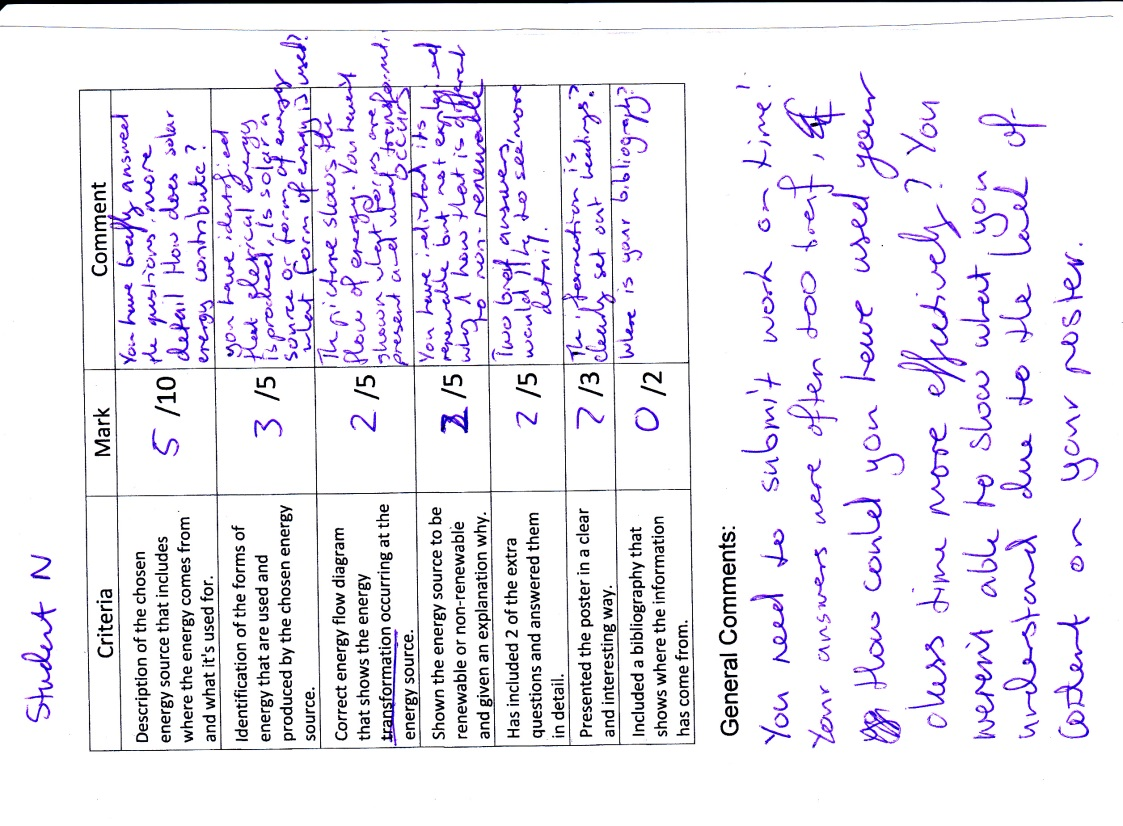 Student N
Criteria
Mark
Comment
Description of the chosen
energy source that includes
where the energy comes from
and what it's used for.
5 /10
You have briefly answered
the questions, more
detail How does solar
energy contribute?
Identification of the forms of
energy that are used and
produced by the chosen energy
source.
3 /5
you have identified
that electrical energy
is produced, Is solar a
source or form of energy
what form of energy is used?
Correct energy flow diagram
that shows the energy
transformation occurring at the
energy source.
2 /5
The picture shows the
flow of energy. You haven't
shown what forms are
present and what
occurs
Shown the energy source to be
renewable or non-renewable
and given an explanation why.
/5
You have its
renewable but not explained
why & how that is different
to non-renewable
Has included 2 of the extra
questions and answered them
in detail.
2 /5
Two brief answers,
would like to see more
detail.
Presented the poster in a clear
and interesting way.
2 /3
The information is
clearly set out headings?
Included a bibliography that
shows where the information
has come from.
0 /2
Where is your bibliography?
General Comments:
You need to submit work on time!
Your answers were often too brief,
How could you have used your
class time more effectively? You
weren't able to show what you
understand due to the lack of
content on your poster.